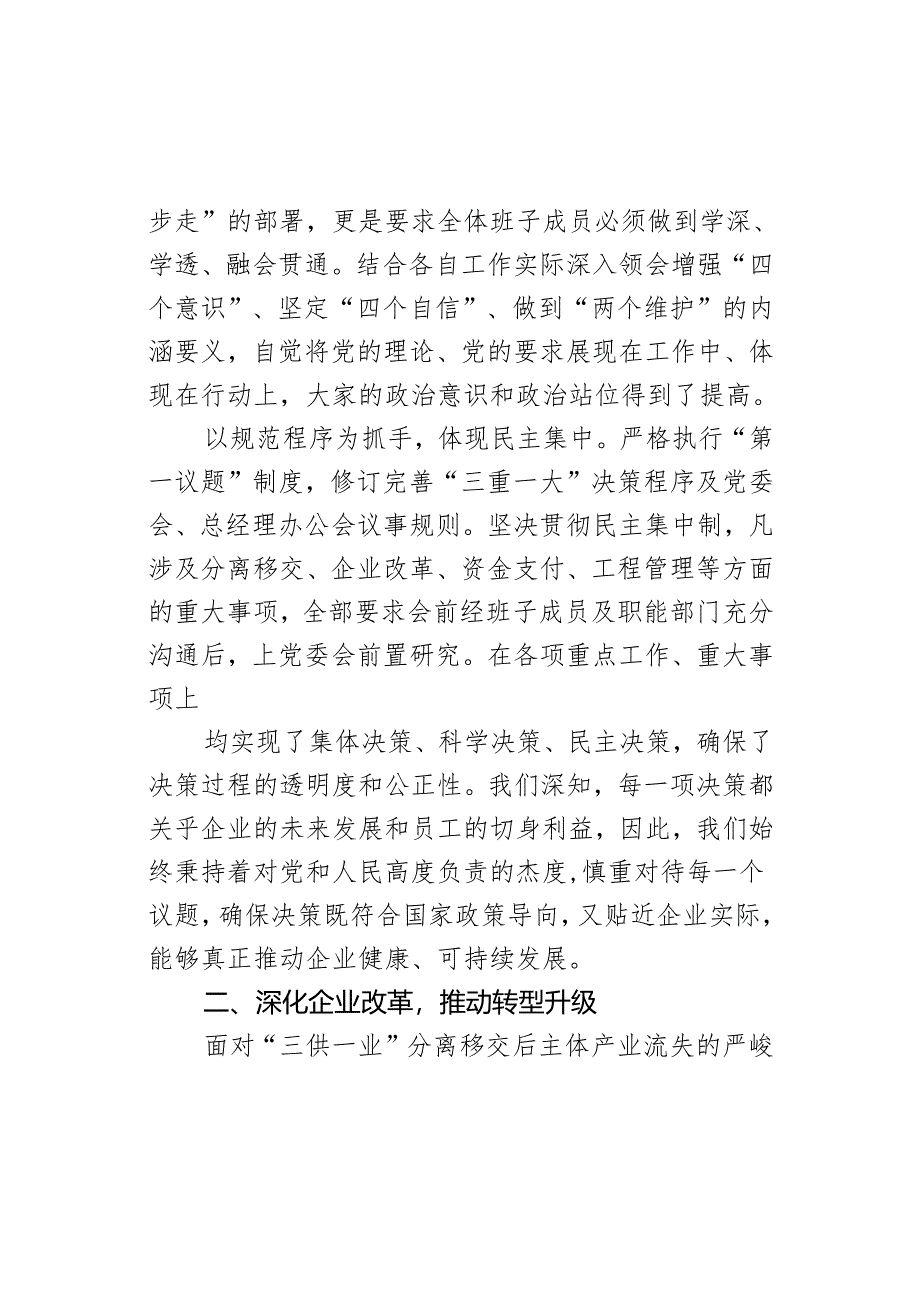 步走”的部署，更是要求全体班子成员必须做到学深、
学透、融会贯通。结合各自工作实际深入领会增强“四
个意识”、坚定“四个自信”、做到“两个维护”的内
涵要义，自觉将党的理论、党的要求展现在工作中、体
现在行动上，大家的政治意识和政治站位得到了提高。
以规范程序为抓手，体现民主集中。严格执行“第
一议题”制度，修订完善“三重一大”决策程序及党委
会、总经理办公会议事规则。坚决贯彻民主集中制，凡
涉及分离移交、企业改革、资金支付、工程管理等方面
的重大事项，全部要求会前经班子成员及职能部门充分
沟通后，上党委会前置研究。在各项重点工作、重大事
项上
均实现了集体决策、科学决策、民主决策，确保了
决策过程的透明度和公正性。我们深知，每一项决策都
关乎企业的未来发展和员工的切身利益，因此，我们始
终秉持着对党和人民高度负责的杰度,慎重对待每一个
议题，确保决策既符合国家政策导向，又贴近企业实际，
能够真正推动企业健康、可持续发展。
二、深化企业改革，推动转型升级
面对“三供一业”分离移交后主体产业流失的严峻